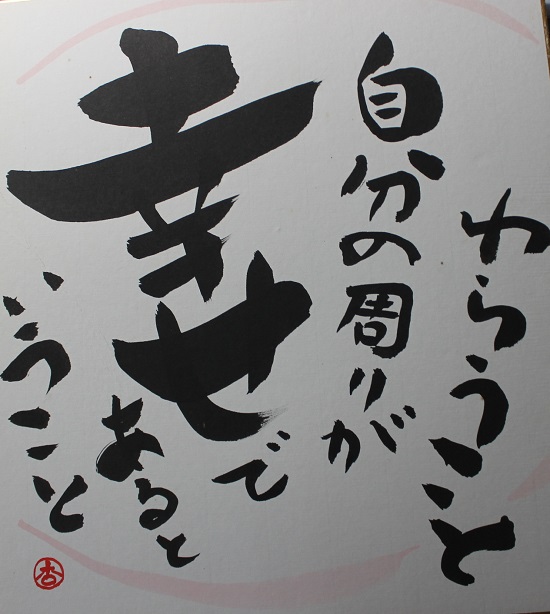 わらうこと
自分の周りが
幸せで
あると
いうこと